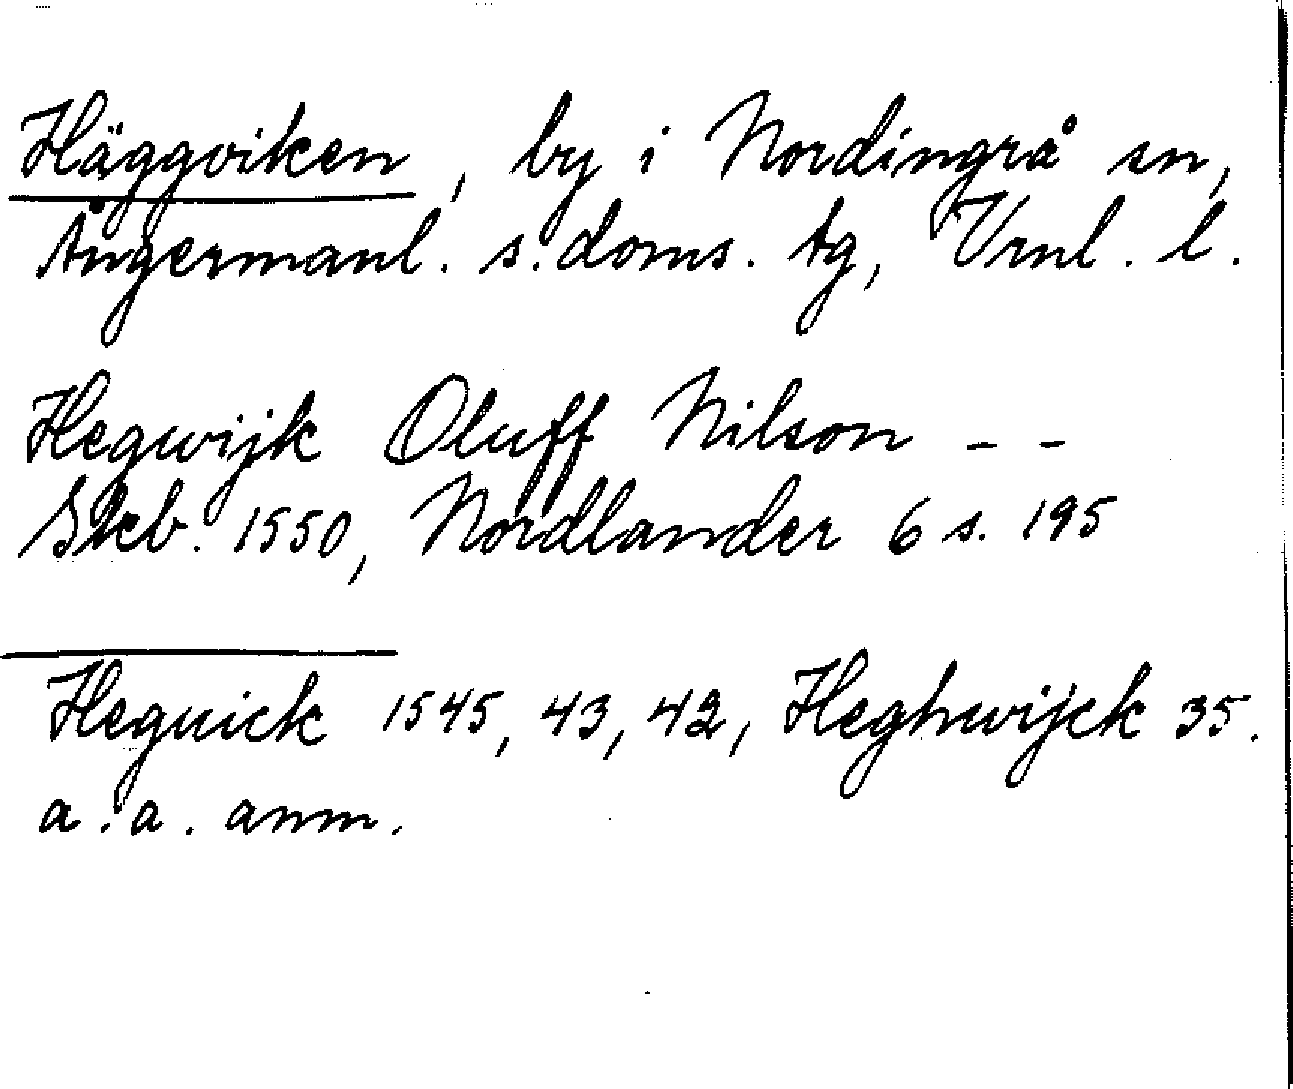 Häggviken, by i Nordingrå sn,
Ångermanl. s. doms. tg, Vrnl. l.
Hegwijk Oluff Nilson - -
Skb. 1550, Nordlander 6 s. 195
Heguick 1545, 43, 42, Heghwijck 35.
a. a. anm.